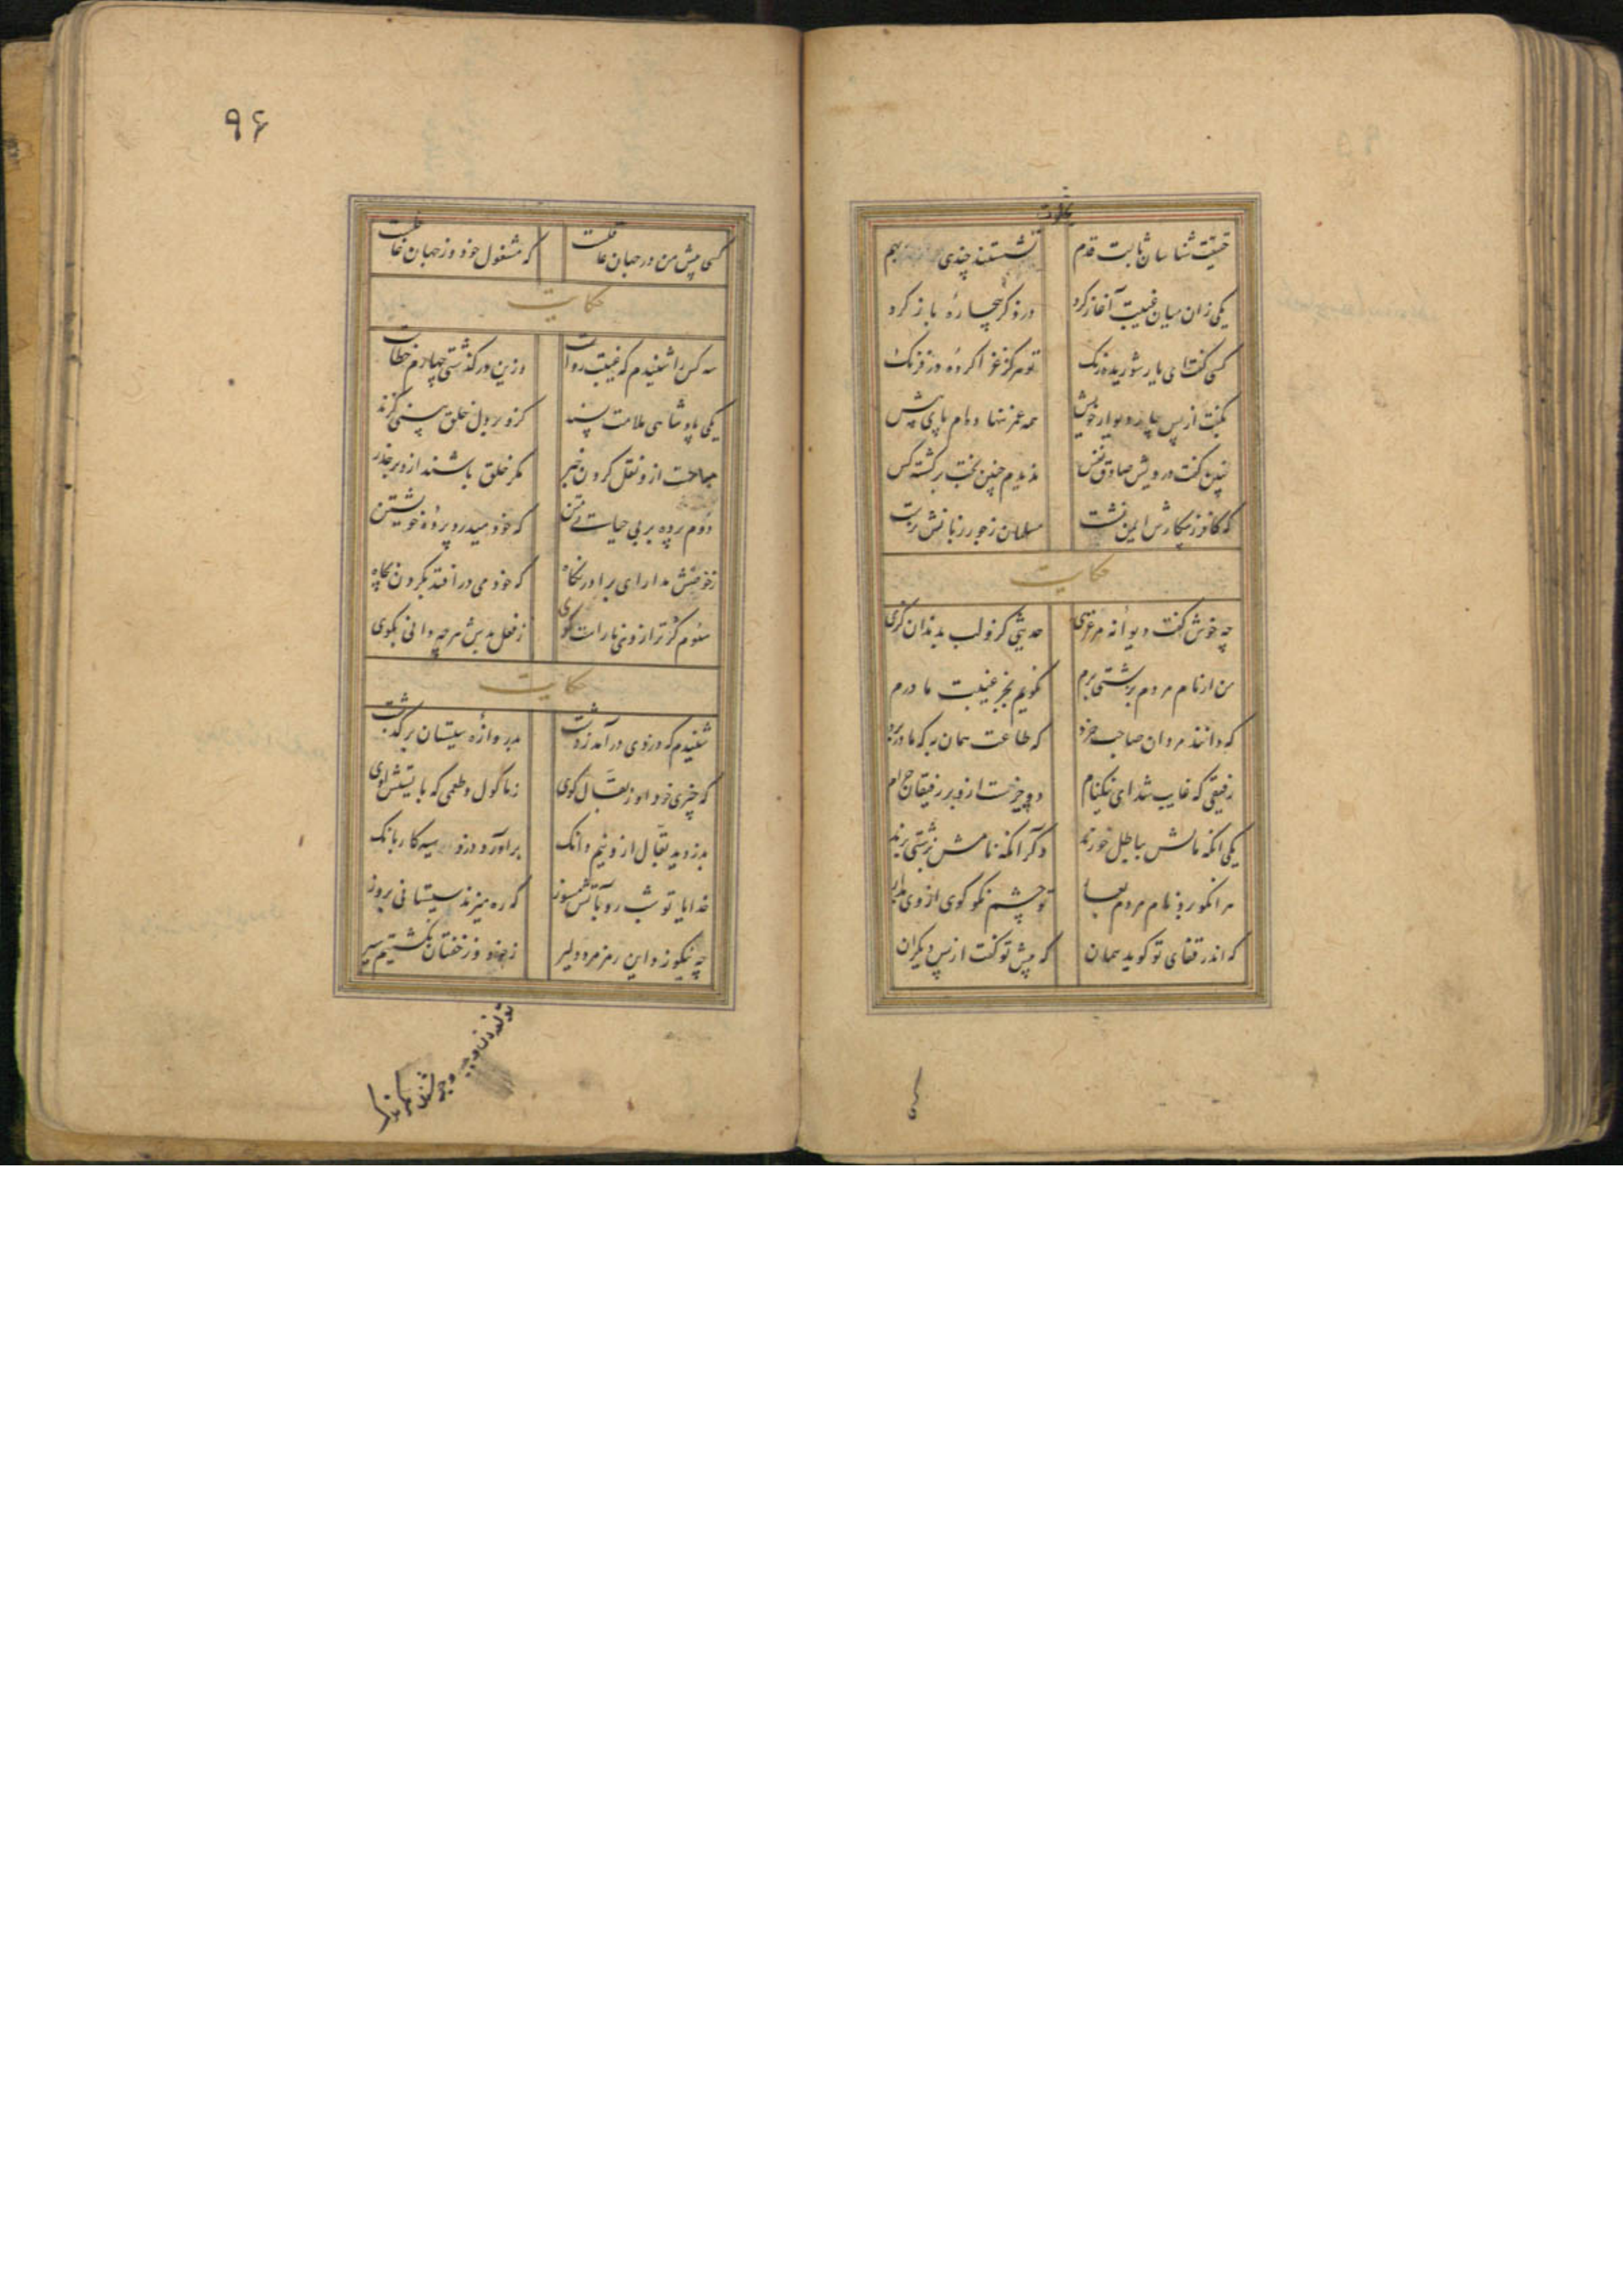 حقیقت شناسان ثابت قدم نشستند چندی بهم
یکی زان میان غیبت آغاز کرد در ذکر بیچارهٔ باز کرد
کسی گفتش ای یار شوریده رنگ تو هرگز غزا کردهٔ در فرنگ
بگفت از پس چار دیوار خویش همه عمر ننهاده‌ام پای پیش
چنین گفت درویش صادق نفس ندیدم چنین بخت برگشته کس
که کافر ز پیکارش ایمن نشست مسلمان ز جور زبانش نرست
حکایت
چه خوش گفت دیوانهٔ مرغزی حدیثی کزو لب بدندان گزی
من ار نام مردم بزشتی برم نگویم بجز غیبت مادرم
که دانند مردان صاحب خرد که طاعت همان به که مادر برد
رفیقی که غایب شد ای نیکنام دو چیزست ازو بر رفیقان حرام
یکی آنکه مالش بباطل خورند دگر آنکه نامش بزشتی برند
هر آنکو برد نام مردم بعار تو چشم نکو گویی از وی مدار
که اندر قفای تو گوید همان که پیش تو گفت از پس دیگران
۹۶
کسی پیش من در جهان عاقلست که مشغول خود وز جهان غافلست
حکایت
سه کس را شنیدم که غیبت رواست وزین درگذشتی چهارم خطاست
یکی پادشاهی ملامت پسند کزو بر دل خلق بینی گزند
حلالست ازو نقل کردن خبر مگر خلق باشند ازو بر حذر
دوم پرده بر بی حیایی متن که خود میدرد پردهٔ خویشتن
ز حوضش مدار ای برادر نگاه که خود می درافتد بگردن بچاه
سوم کژ ترازوی ناراست گوی ز فعل بدش هرچه دانی بگوی
حکایت
شنیدم که دزدی درآمد ز دشت بدروازهٔ سیستان برگذشت
که چیزی خرد او ز بقال کوی ز ماکول و طعمی که بایستش اوی
بدزدید بقال ازو نیم دانگ برآورد دزد سیه کار بانگ
خدایا تو شب رو بآتش مسوز که ره میزند سیستانی بروز